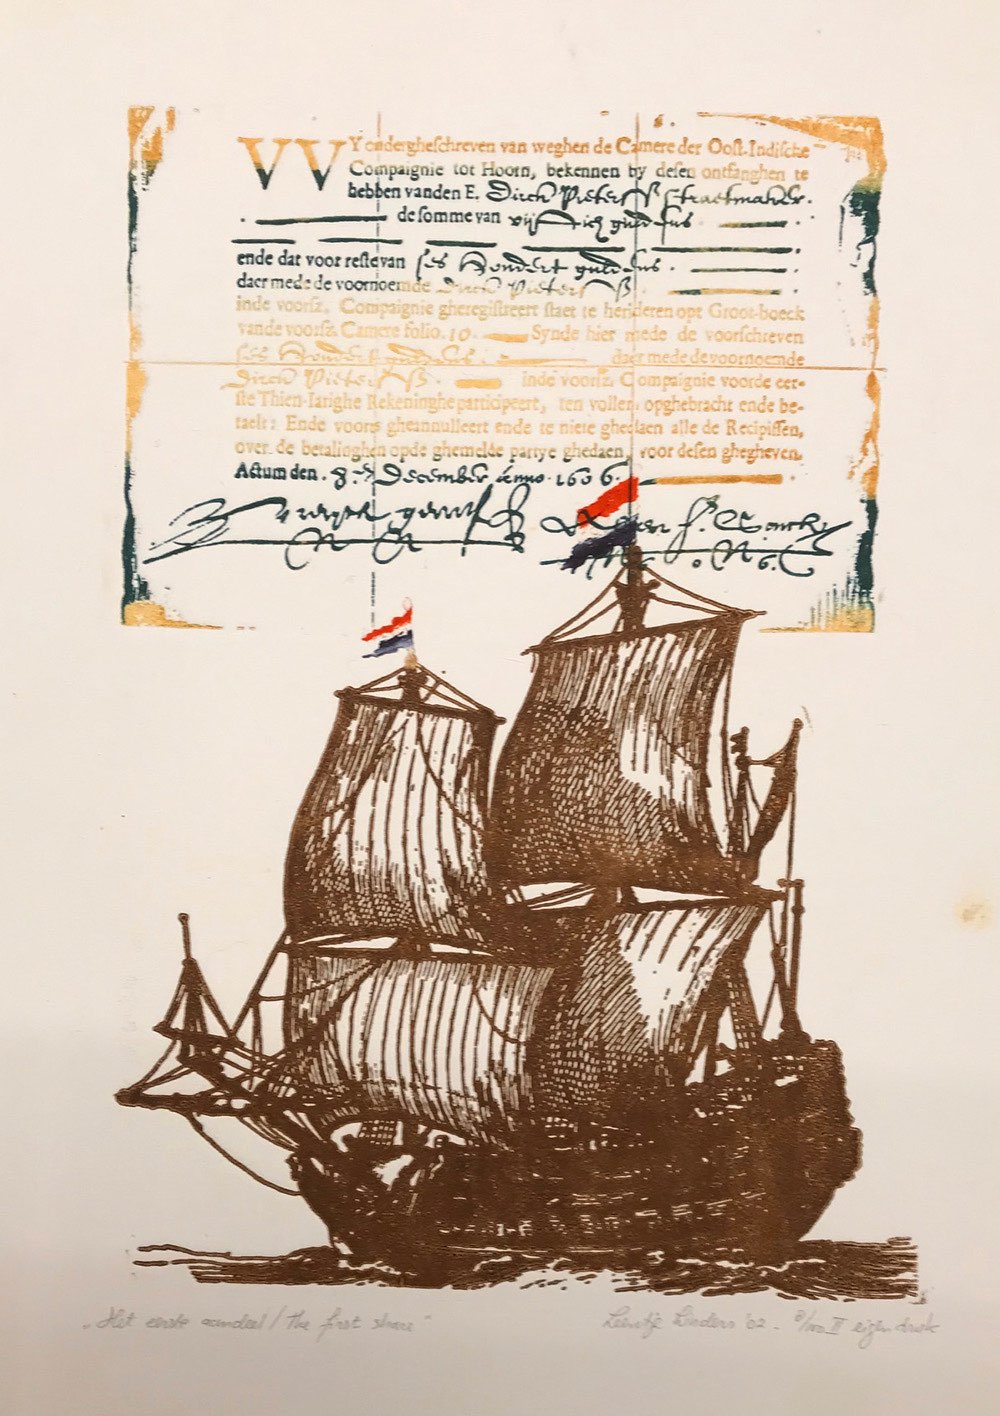 VVY ondergheſchreven van weghen de Camere der Ooſt-Indiſche
Compaignie tot Hoorn, bekennen by deſen ontfanghen te
hebben vanden E. Dirck Pieterſſ Straetmaker.
de ſomme van guldens
ende dat voor reſte van ſes hondert guldens.
daer mede de voornoemde Dirck Pieterſſ
inde voorſz. Compaignie gheregiſtreert ſtaet te herideren opt Groot-boeck
vande voorſz. Camere folio. 10 Synde hier mede de voorſchreven
ſes hondert guldens daer mede de voornoemde
Dirck Pieterſſ inde voorſz. Compaignie voorde eer-
ſte Thien-Iarighe Rekeninghe participeert, ten vollen opghebracht ende be-
taelt: Ende voorts gheannulleert ende te niete ghedaen alle de Recipiſſen,
over de betalinghen opde ghemelde partye ghedaen, voor deſen ghegheven.
Actum den. December Anno. 1606.
"Het eerste aandeel / The first share"
Leentje Linders '02 - 8/100 II eigen druk